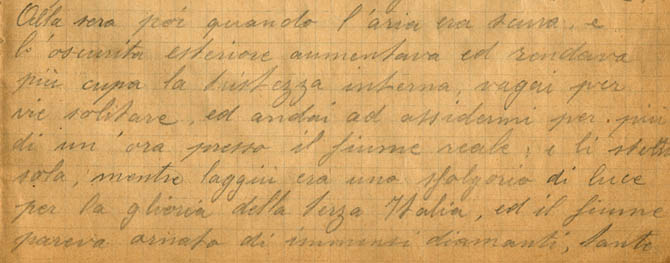 Alla sera poi quando l'aria era scura, e
l'oscurità esteriore aumentava ed rendava
più cupa la tristezza interna, vagai per
vie solitare, ed andai ad assidermi per più
di un'ora presso il fiume reale; e lì stetti
sola, mentre laggiù era uno sfolgorio di luce
per la glieria della terza Italia, ed il fiume
pareva ornato di immensi diamanti, tante